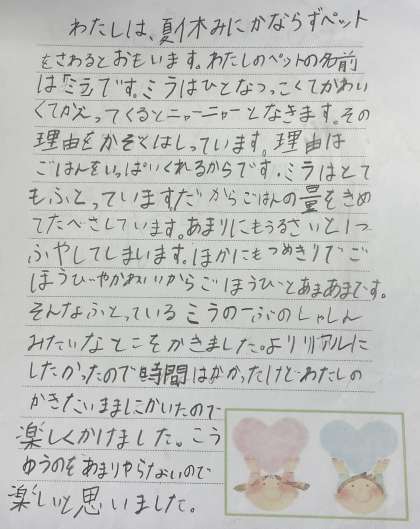 わたしは、夏休みにかならずペット
をさわるとおもいます。わたしのペットの名前
は「ミラ」です。ミラはひとなつっこくてかわい
くてかえってくるとニャーニャーとなきます。その
理由をかぞくはしっています。理由は
ごはんをいっぱいくれるからです。ミラはとて
もふとっていますだからごはんの量をきめ
てたべさしています。あまりにもうるさいと1つ
ふやしてしまいます。ほかにもつめきりでご
ほうびやかわいいからごほうびとあまあまです。
そんなふとっているミラの一ぶのしゃしん
みたいなとこをかきました。よりリアルに
したかったので時間はかかったけどわたしの
かきたいままにかいたので
楽しくかけました。こう
ゆうのをあまりやらないので
楽しいと思いました。